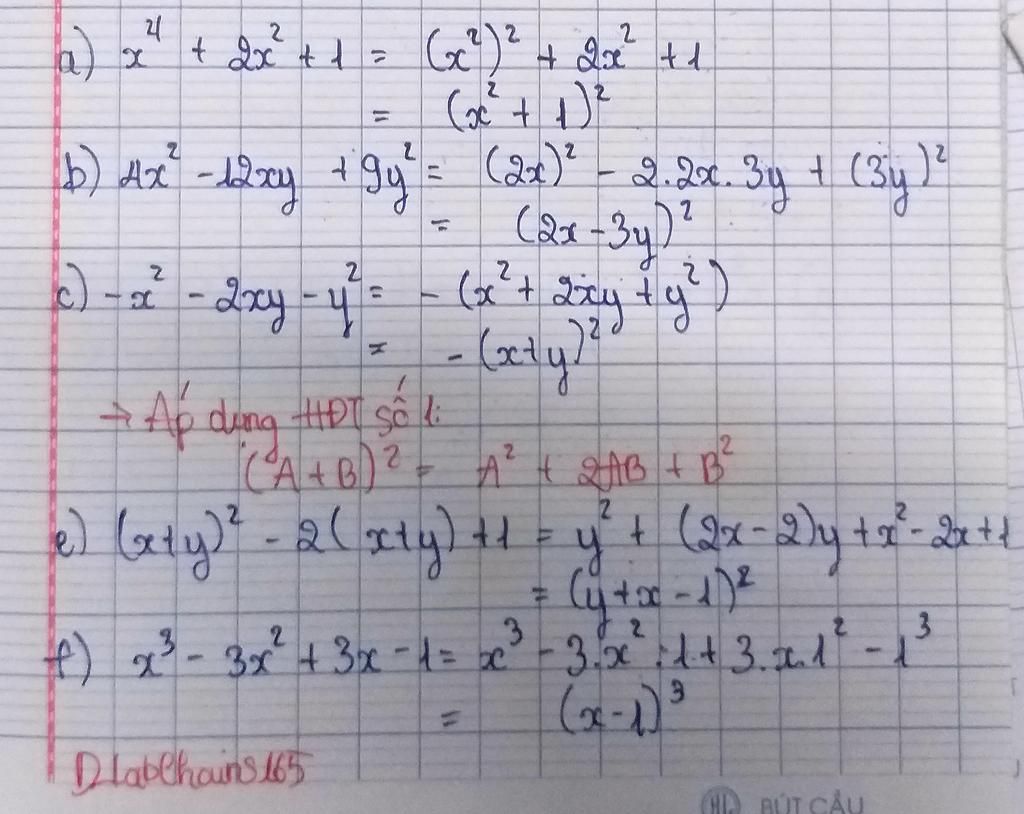 a) x⁴ + 2x² + 1 = (x²)² + 2x² + 1
= (x² + 1)²
b) 4x² - 12xy + 9y² = (2x)² - 2.2x.3y + (3y)²
= (2x - 3y)²
c) -x² - 2xy - y² = - (x² + 2xy + y²)
= - (x+y)²
→ Áp dụng HĐT số 1:
(A + B)² = A² + 2AB + B²
e) (x+y)² - 2(x+y) + 1 = y² + (2x - 2)y + x² - 2x + 1
= (y + x - 1)²
f) x³ - 3x² + 3x - 1 = x³ - 3.x².1 + 3.x.1² - 1³
= (x - 1)³
BÚT CẨU